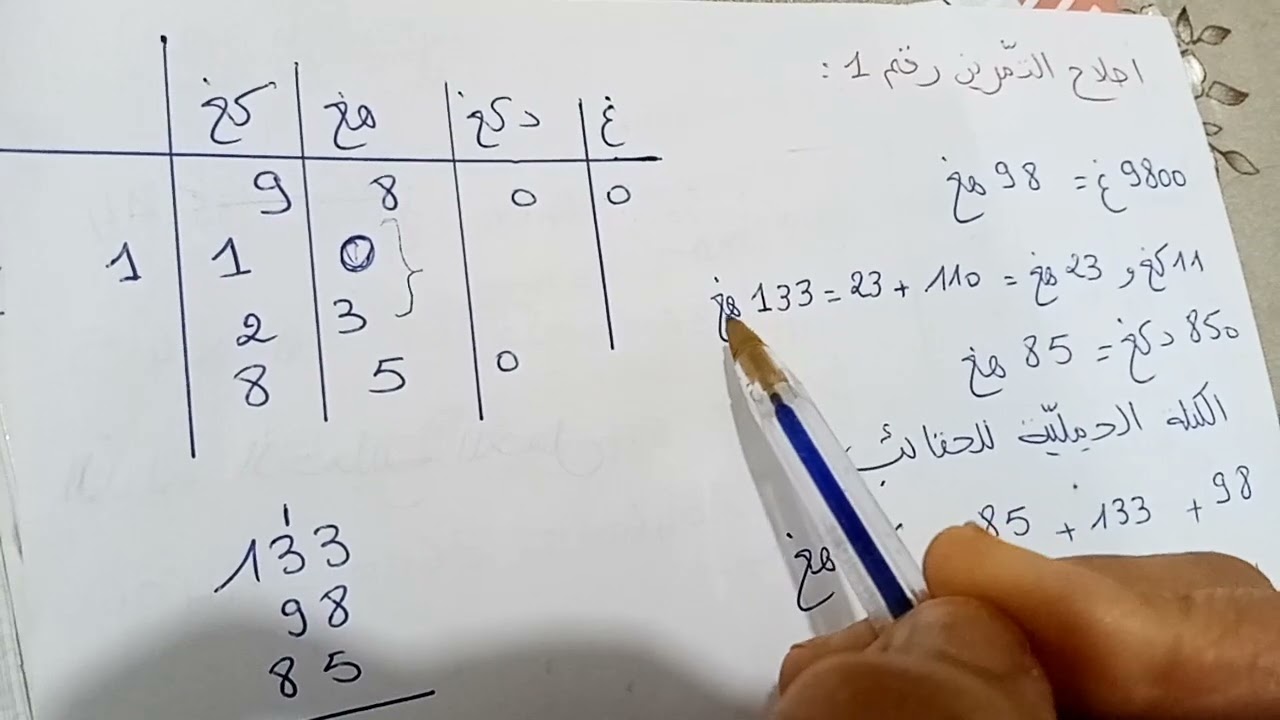 اصلاح التمرين رقم 1 :
9800 غ = 98 هغ
11 كغ و 23 هغ = 110 + 23 = 133 هغ
850 دكغ = 85 هغ
الكتلة الجمليّة للحقائب
98 + 133 + 85
هغ
كغ هغ دكغ غ
9 8 0 0
1 1 0
2 3
8 5 0
1
133
98
85